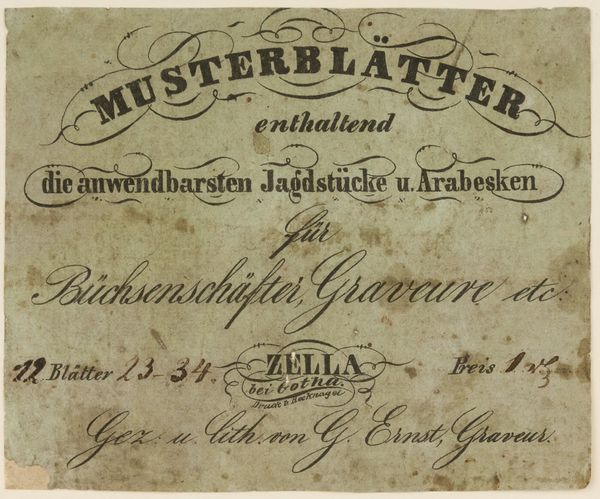 MUSTERBLÄTTER
enthaltend
die anwendbarsten Jagdstücke u. Arabesken
für
Büchsenschäfter, Graveure etc.
12 Blätter 23-34.
ZELLA
bei Gotha.
Druck b. Recknagel
Preis 1
Gez. u. lith. von G. Ernst, Graveur.